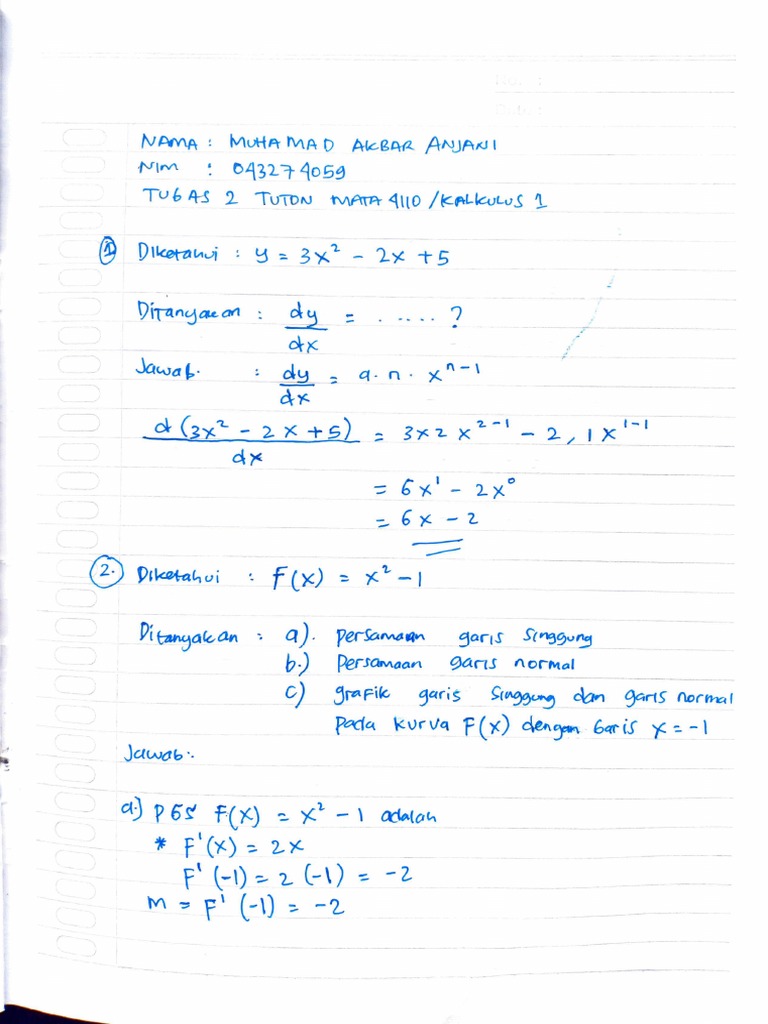 NAMA : MUHAMAD AKBAR ANJANI
NIM : 043274059
TUGAS 2 TUTON MATA 4110 /KALKULUS 1
1 Diketahui : y = 3x² - 2x + 5
Ditanyakan : dy/dx = ..... ?
Jawab. : dy/dx = a. n. x^(n-1)
d(3x² - 2x + 5)/dx = 3x2 x^(2-1) - 2, 1x^(1-1)
= 6x¹ - 2x⁰
= 6x - 2
2. Diketahui : F(x) = x² - 1
Ditanyakan : a). persamaan garis singgung
b.) Persamaan garis normal
c) grafik garis singgung dan garis normal
pada kurva F(x) dengan garis x = -1
Jawab:.
a.) PGS F(x) = x² - 1 adalah
* F'(x) = 2x
F' (-1) = 2 (-1) = -2
m = F' (-1) = -2